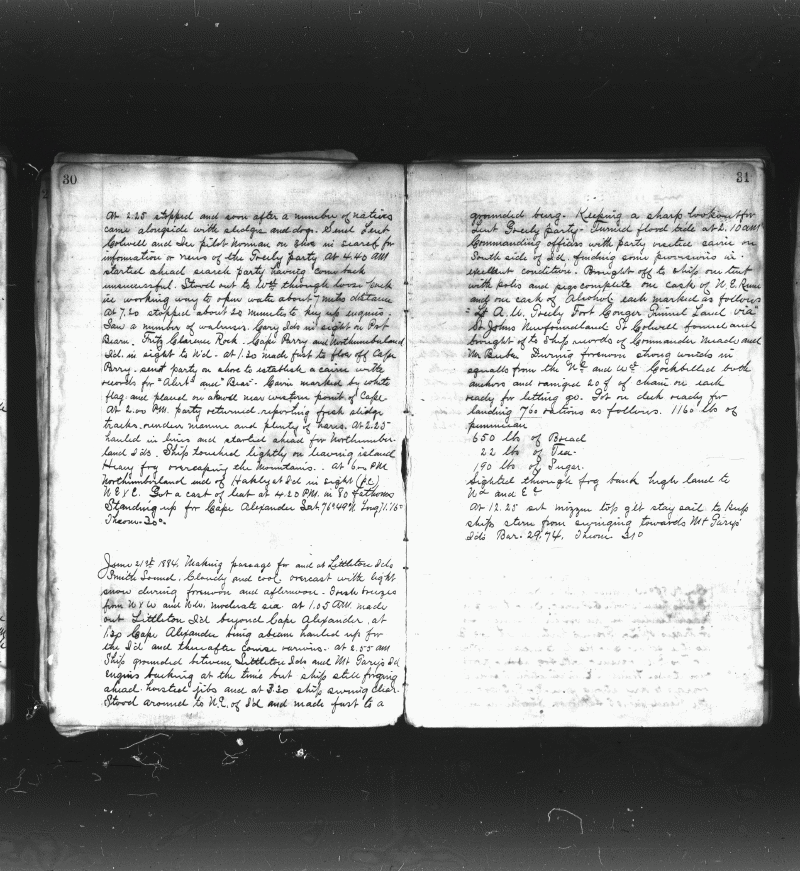 30
At 2.25 stopped and soon after a number of natives
came alongside with sledges and dogs. Send Lieut
Colwell and Ice pilot Norman on shore in search for
information or news of the Greely party. At 4.40 AM
started ahead search party having come back
unsuccessful. Stood out to Wd through loose pack
ice working way to open water about 7 miles distance
At 7.20 stopped about 20 minutes to key up engines.
Saw a number of walruses. Cary Ids in sight on Port
Beam. Fitz Clarence Rock. Cape Parry and Northumberland
Id. in sight to N'd. at 1.20 made fast to floe off Cape
Parry. sent party on shore to establish a cairn with
records for "Alert" and "Bear". Cairn marked by white
flag and placed on near western point of Cape
At 2.00 P.M. party returned reporting fresh sledge
tracks, reindeer manure and plenty of hares. At 2.25
hauled in lines and started ahead for Northumber
land Ids. Ship touched lightly on leaving island
Heavy fog overcaping the mountains. At 6 P.M
Northumberland end of Hakluyt Id in sight (p.c.)
N.E x E. Got a cast of lead at 4.20 P.M. in 80 fathoms
Standing up for Cape Alexander Lat. 76° 49' N Long 71.16°
Therm. 30°.
June 21st 1884. Making passage for and at Littleton Ids
Smith Sound. Cloudy and cool. overcast with light
snow during forenoon and afternoon. Fresh breezes
from N x W and NW. moderate sea. at 1.05 A.M. made
out Littleton Id beyond Cape Alexander. at
1.30 Cape Alexander being abeam hauled up for
the Id and thereafter course various. at 2.55 am
Ship grounded between Littleton Ids and McGary's Id
Engines backing at the time but ship still forging
ahead. hoisted jibs and at 3.20 ship swung clear.
Stood around to N.E. of Id and made fast to a
31
grounded berg. Keeping a sharp lookout for
Lieut Greely party. Turned flood tide at 2.10 AM
Commanding officer with party visited cairn on
South side of Id. finding some provisions in
excellent condition. Brought off to ship one tent
with poles and pegs complete one cask of N.E. Rum
and one cask of Alcohol each marked as follows
"Lt A.W. Greely Fort Conger Grinnel Land via"
St Johns Newfoundland Lt Colwell found and
brought of to Ship records of Commander Meade and
Mr Beebe During forenoon strong winds in
squalls from the Nd and Wd. Cockbilled both
anchors and ranged 20 f of chain on each
ready for letting go. Got on deck ready for
landing 700 rations as follows. 1160 lbs of
pemmican
650 lbs of Bread
22 lbs of Tea.
190 lbs of Sugar.
Sighted through fog bank high land to
Nd and Ed
At 12.25 set mizzen top glt stay sail to keep
ship stern from swinging towards McGary's
Ids Bar. 29.74. Therm 31°